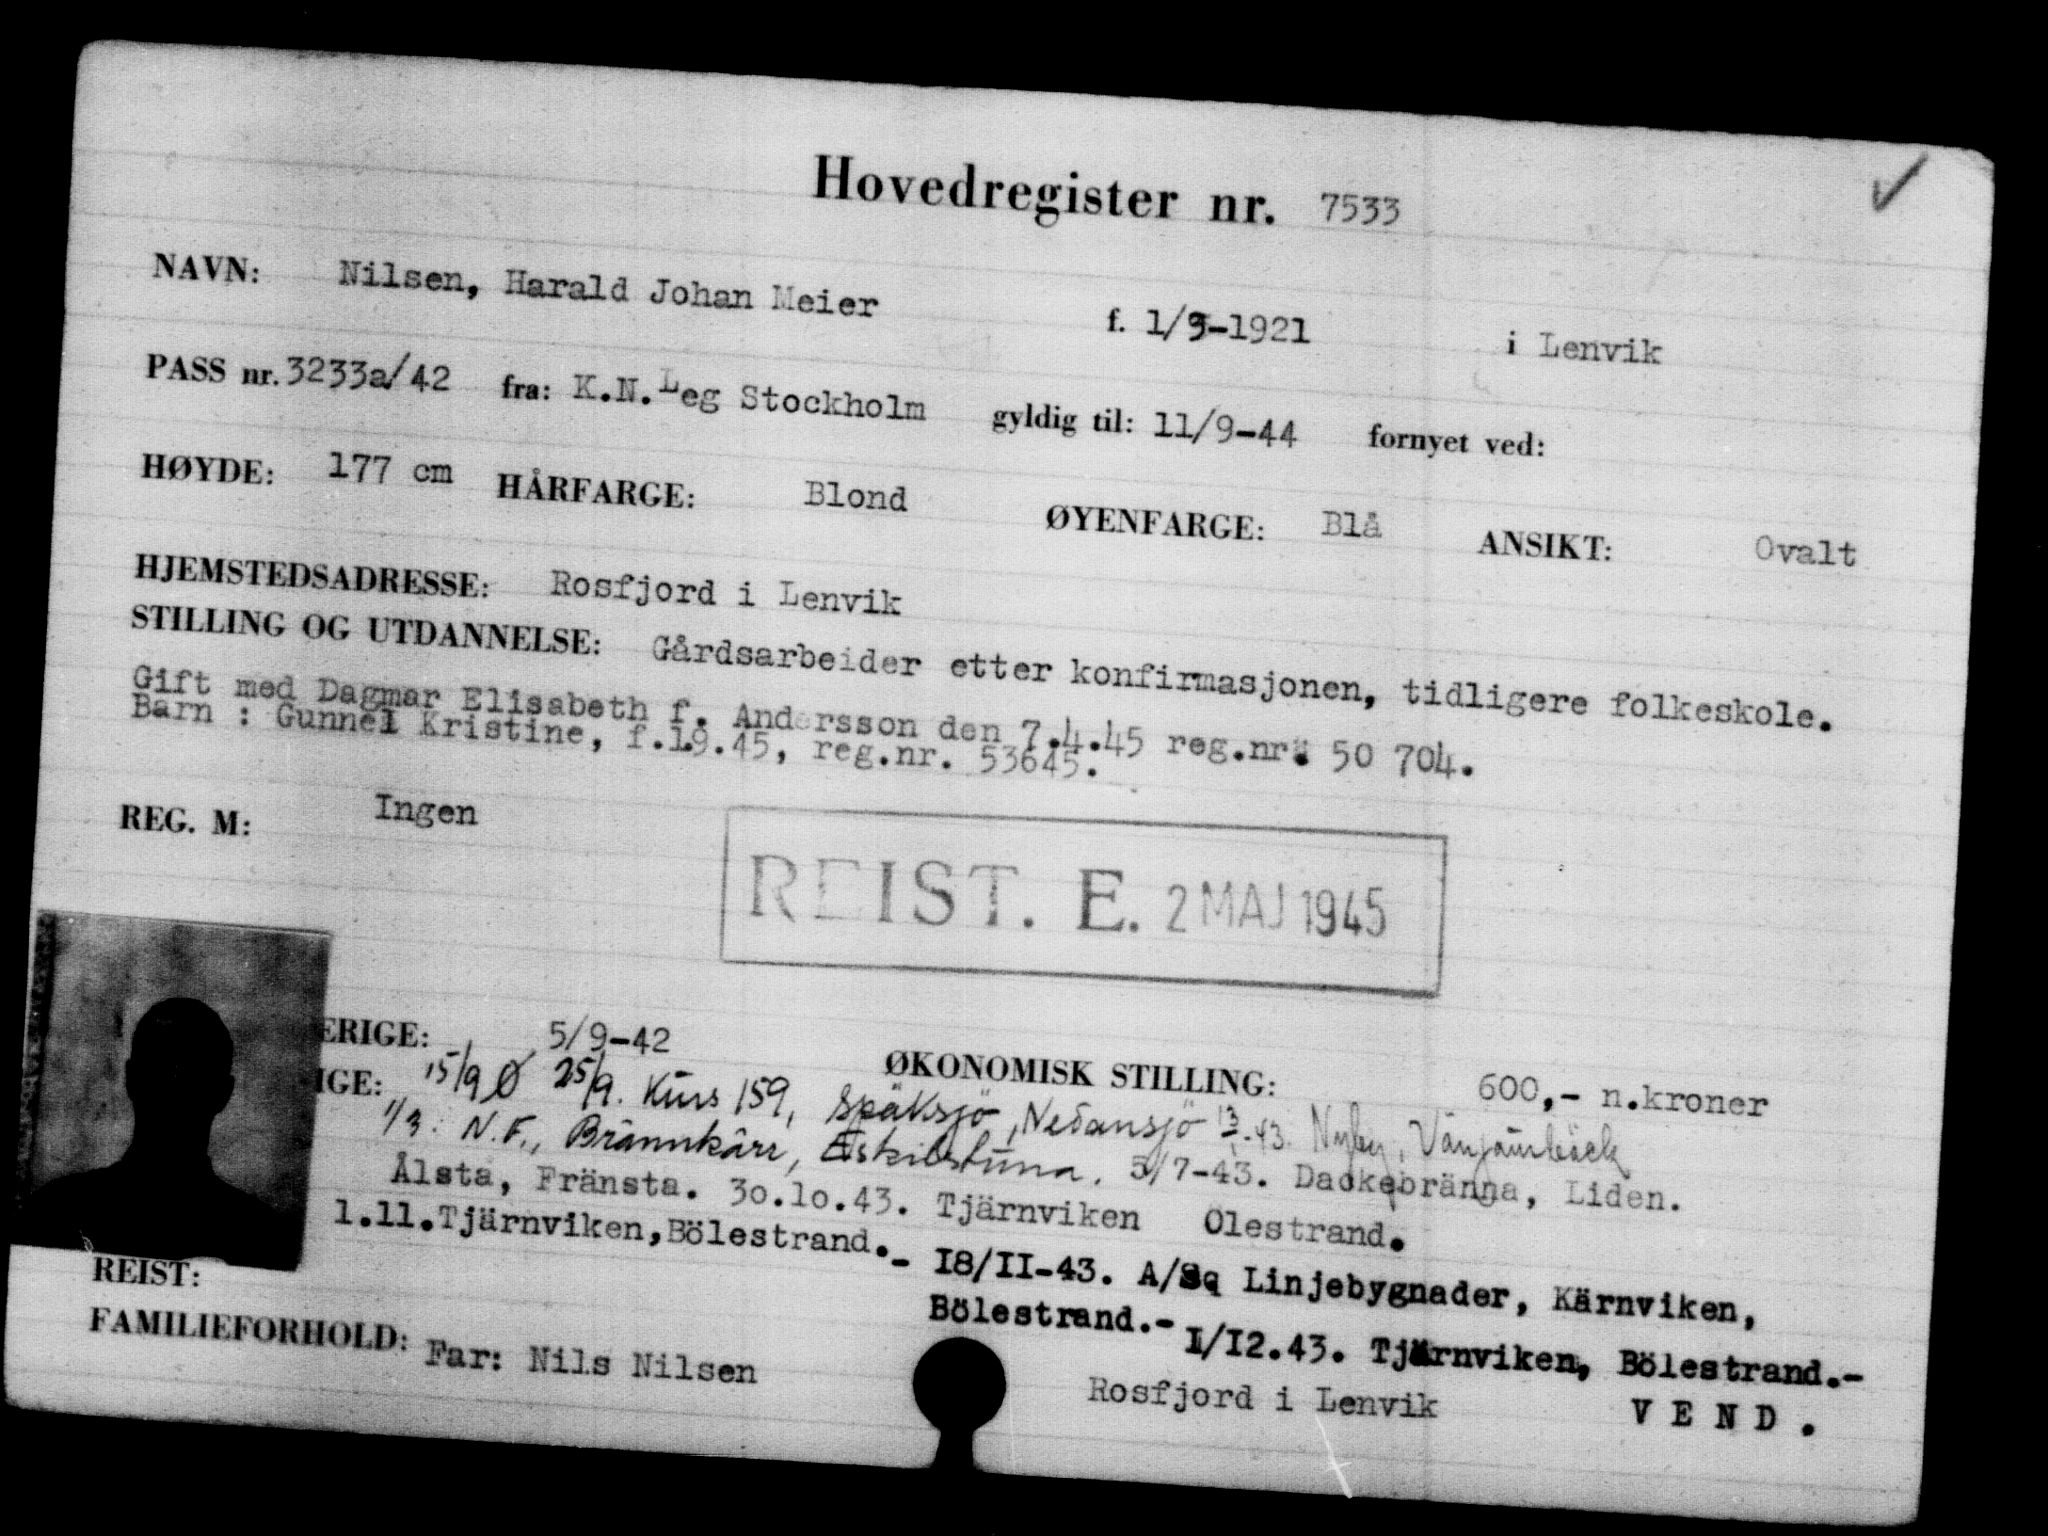 Hovedregister nr. 7533
NAVN: Nilsen, Harald Johan Meier f. 1/9-1921 i Lenvik
PASS nr. 3233a/42 fra: K.N.Leg Stockholm gyldig til: 11/9-44 fornyet ved:
HØYDE: 177 cm HÅRFARGE: Blond ØYENFARGE: Blå ANSIKT: Ovalt
HJEMSTEDSADRESSE: Rosfjord i Lenvik
STILLING OG UTDANNELSE: Gårdsarbeider etter konfirmasjonen, tidligere folkeskole.
Gift med Dagmar Elisabeth f. Andersson den 7.4.45 reg.nr. 50 704.
Barn : Gunnel Kristine, f.19.45, reg.nr. 53645.
REG. M: Ingen
REIST. E. 2 MAJ 1945
ERIGE: 5/9-42 ØKONOMISK STILLING: 600,- n.kroner
IGE: 15/9 Ø 25/9. Kurs 159, Späksjö, Nedansjö 13/1-43. Nyby,
1/3: N.F., Brännkärr, Eskilstuna. 5/7-43. Dackebränna, Liden.
Ålsta, Fränsta. 30.10.43. Tjärnviken Olestrand.
1.11.Tjärnviken,Bölestrand.- 18/II-43. A/Sq Linjebygnader, Kärnviken,
Bölestrand.- I/I2.43. Tjärnviken, Bölestrand.-
REIST:
FAMILIEFORHOLD: Far: Nils Nilsen Rosfjord i Lenvik VEND.